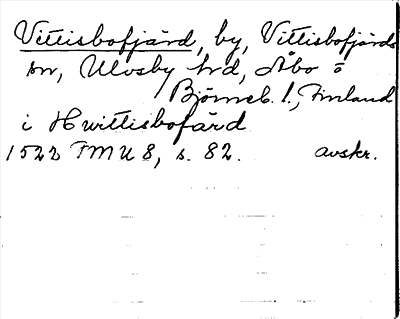 Vittisbofjärd, by, Vittisbofjärds
sn, Ulvsby hd, Åbo o
Björneb. l., Finland
i Hwittisbofärd
1522 FMU 8, s. 82. avskr.